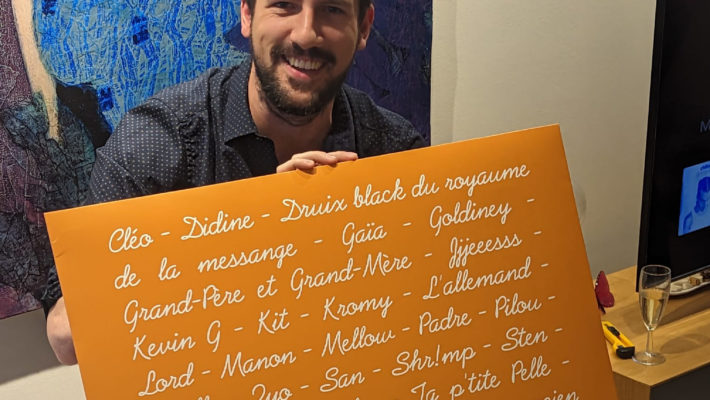 Cléo - Didine - Druix black du royaume
de la messange - Gaïa - Goldiney -
Grand-Père et Grand-Mère - Jjjeeesss -
Kevin G - Kit - Kromy - L'allemand -
Lord - Manon - Mellow - Padre - Pilou -
San - Shr!mp - Sten -
Ta p'tite Pelle -